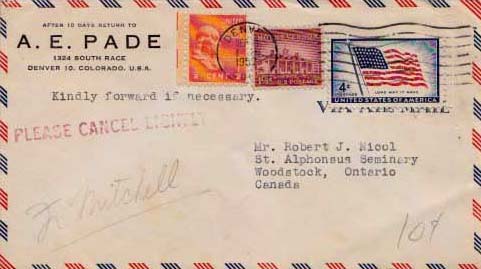 AFTER 10 DAYS RETURN TO
A. E. PADE
1324 SOUTH RACE
DENVER 10, COLORADO, U.S.A.
Kindly forward if necessary.
PLEASE CANCEL LIGHTLY
DENVER
4¢
LONG MAY IT WAVE
UNITED STATES OF AMERICA
VIA AIR MAIL
Mr. Robert J. Nicol
St. Alphonsus Seminary
Woodstock, Ontario
Canada
Fr Mitchell
10¢